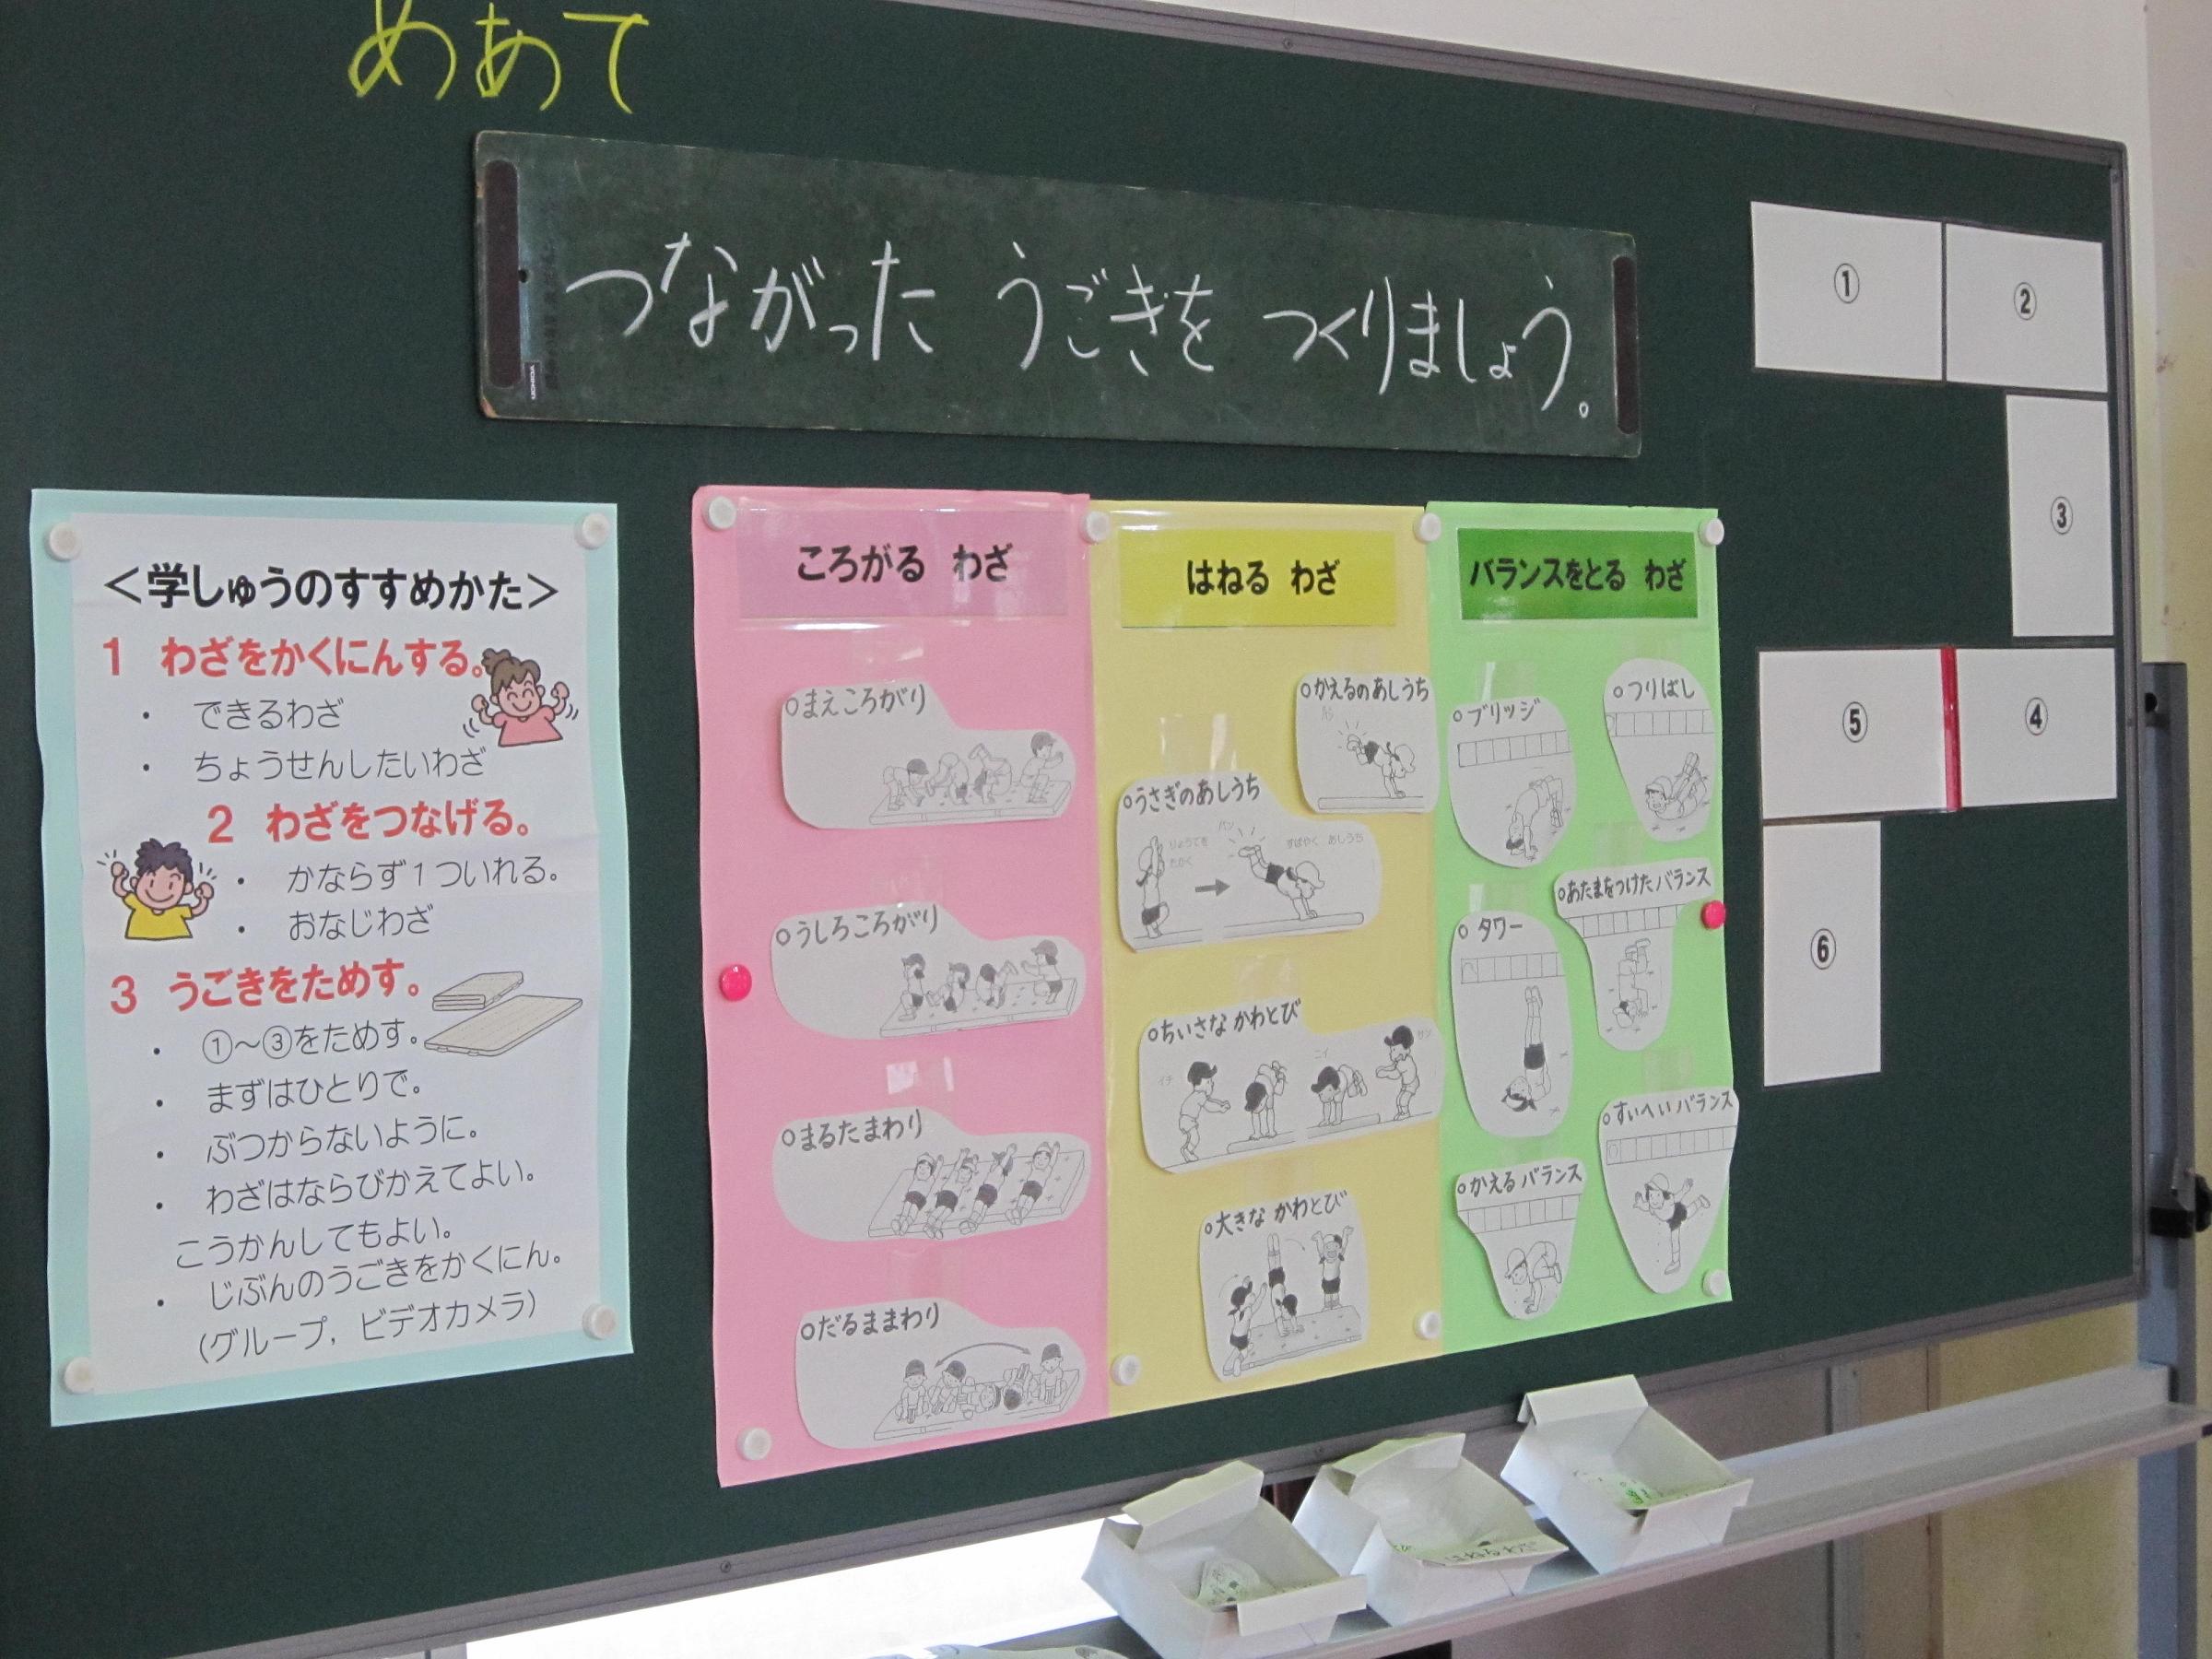 めあて
つながった うごきを つくりましょう。
＜学しゅうのすすめかた＞
1 わざをかくにんする。
・ できるわざ
・ ちょうせんしたいわざ
2 わざをつなげる。
・ かならず１ついれる。
・ おなじわざ
3 うごきをためす。
・ ①～③をためす。
・ まずはひとりで。
・ ぶつからないように。
・ わざはならびかえてよい。
こうかんしてもよい。
・ じぶんのうごきをかくにん。
(グループ，ビデオカメラ)
ころがる わざ
○まえころがり
○うしろころがり
○まるたまわり
○だるままわり
はねる わざ
○かえるのあしうち
○うさぎのあしうち
りょうてを
たたく
パン
すばやく あしうち
○ちいさな かわとび
イチ
ニイ
サン
○大きな かわとび
バランスをとる わざ
○ブリッジ
○つりばし
○あたまをつけたバランス
○タワー
○すいへいバランス
○かえるバランス
①
②
③
④
⑤
⑥